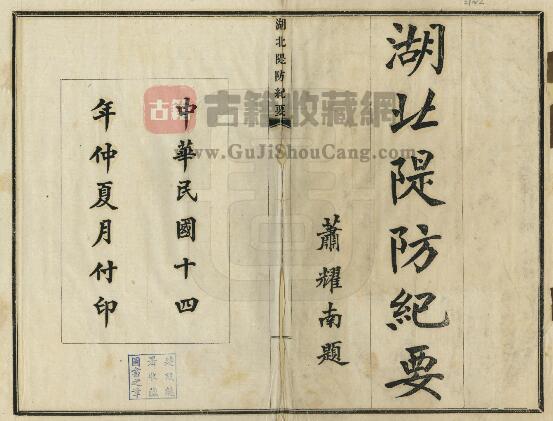 湖北隄防紀要
蕭耀南題
湖北隄防紀要
中華民國十四
年仲夏月付印
古籍
古籍收藏網
www.GuJiShouCang.com